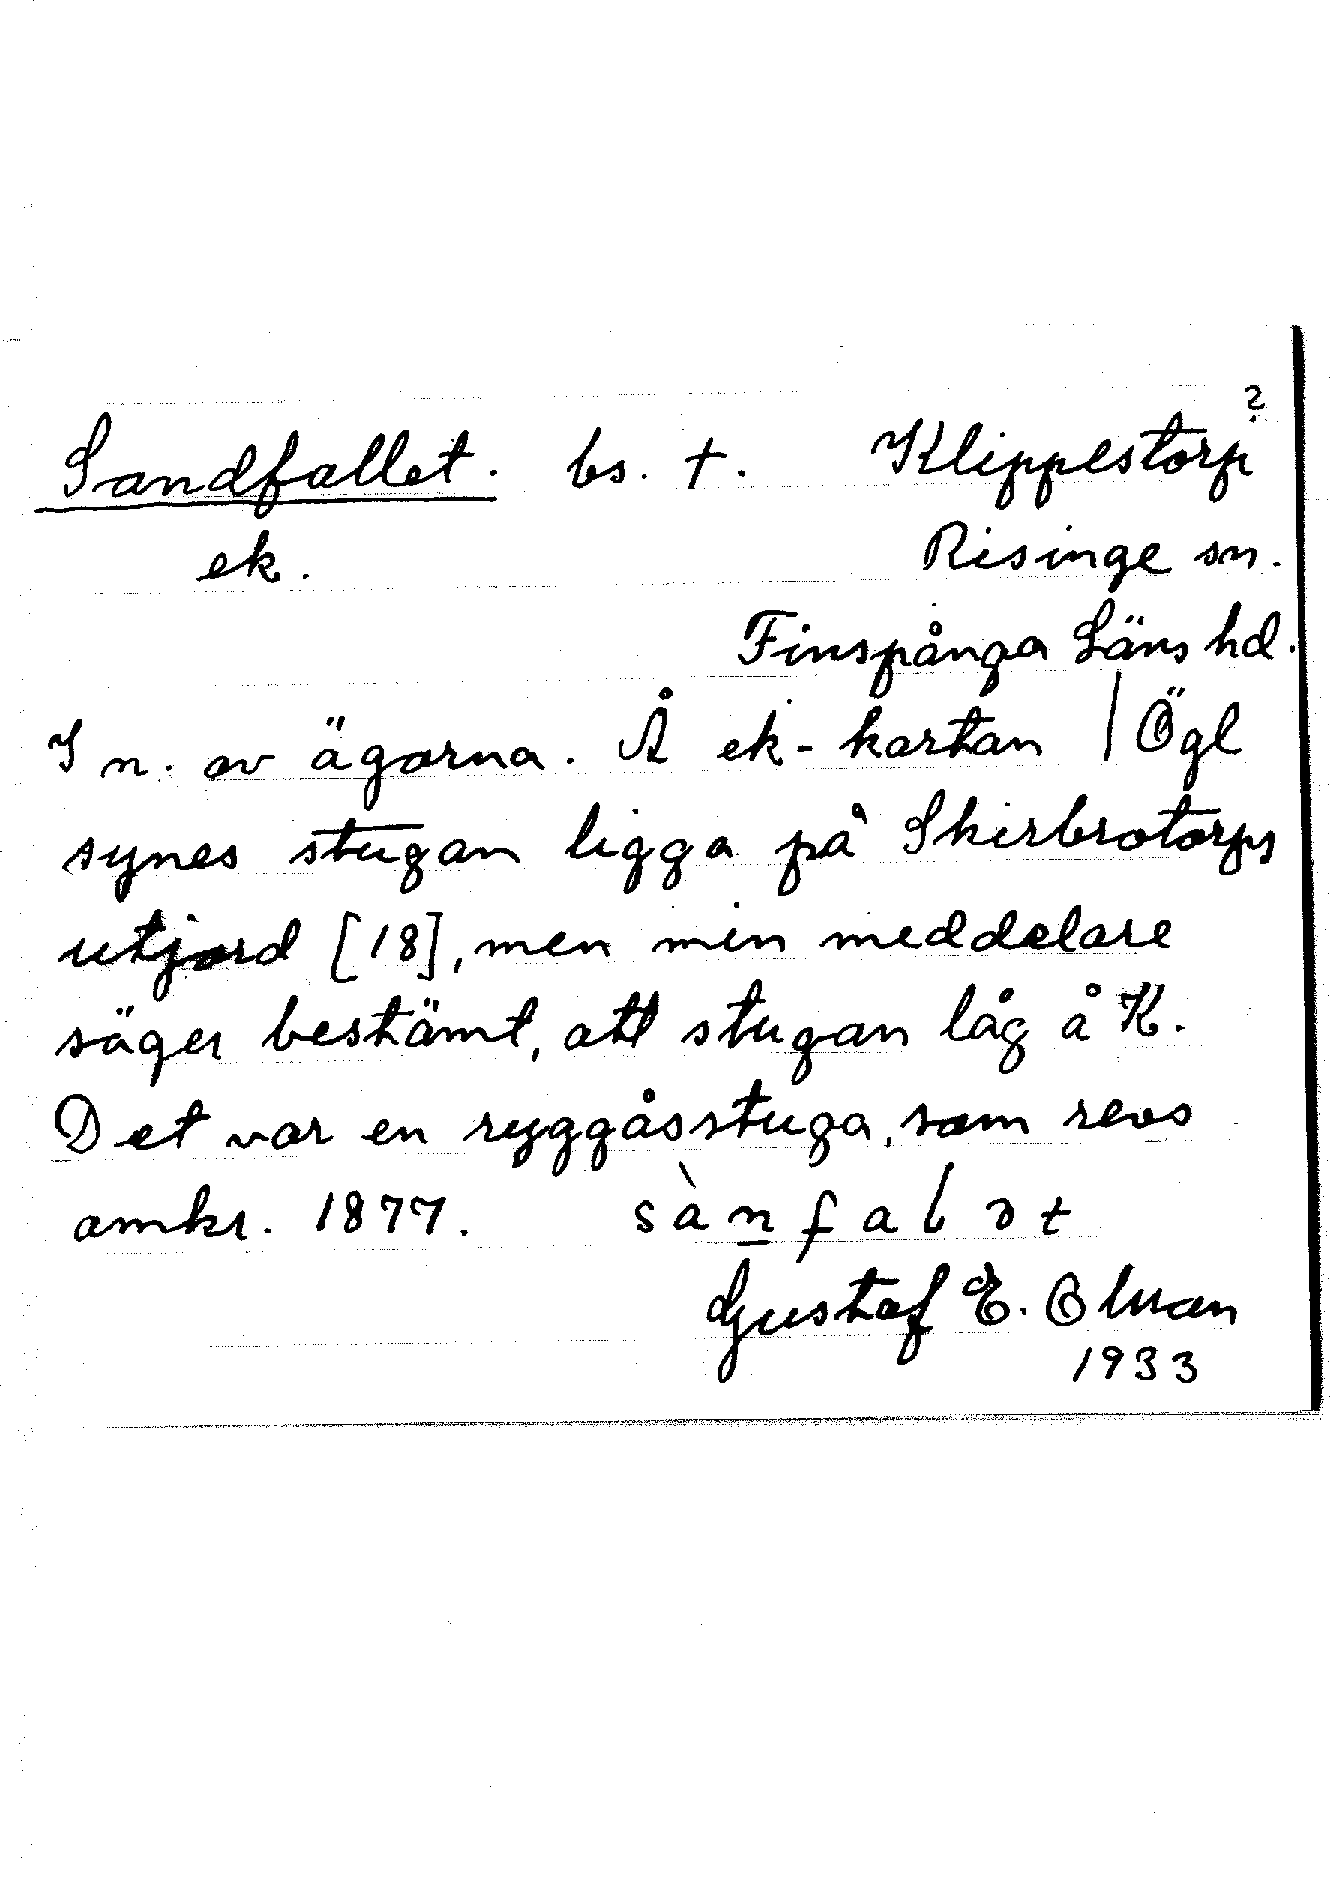 Sandfallet. bs. †. Klippestorp?
ek. Risinge sn.
Finspånga Läns hd.
I n. av ägorna. Å ek-kartan | Ögl
synes stugan ligga på Skirbrotorps
utjord [18], men min meddelare
säger bestämt, att stugan låg å K.
Det var en ryggåsstuga, som revs
omkr. 1877. sànfalət
Gustaf E. Olman
1933